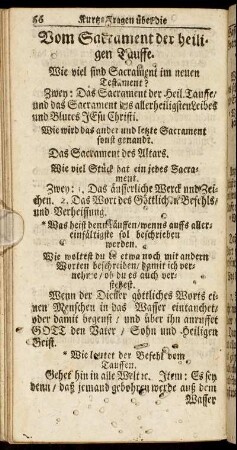 66 Kurtze Fragen über die
Vom Sacrament der heili-
gen Tauffe.
Wie viel sind Sacrament im neuen
Testament?
Zwey: Das Sacrament der Heil. Tauffe/
und das Sacrament des allerheiligsten Leibes
und Blutes JEsu Christi.
Wie wird das ander und letzte Sacrament
sonst genandt.
Das Sacrament des Altars.
Wie viel Stück hat ein jedes Sacra-
ment.
Zwey: 1. Das äusserliche Werck und Zei-
chen. 2. Das Wort des Göttlichen Befehls
und Verheissung.
*Was heist denn täuffen/ wenns auffs aller-
einfältigste sol beschrieben
werden.
Wie woltest du es etwa noch mit andern
Worten beschreiben/ damit ich ver-
nehme/ ob du es auch ver-
stehest.
Wenn der Diener göttliches Worts ei-
nen Menschen in das Wasser eintauchet/
oder damit begeust/ und über ihn anruffet
GOTT den Vater/ Sohn und Heiligen
Geist.
*Wie lautet der Befehl vom
Tauffen.
Gehet hin in alle Welt ꝛc. Item: Es sey
denn/ daß jemand gebohren werde auß dem
Wasser